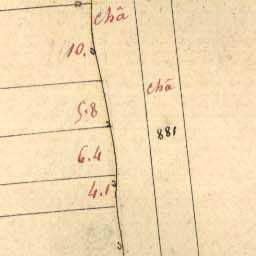 châ
10.
châ
5.8
881
6.4
4.1